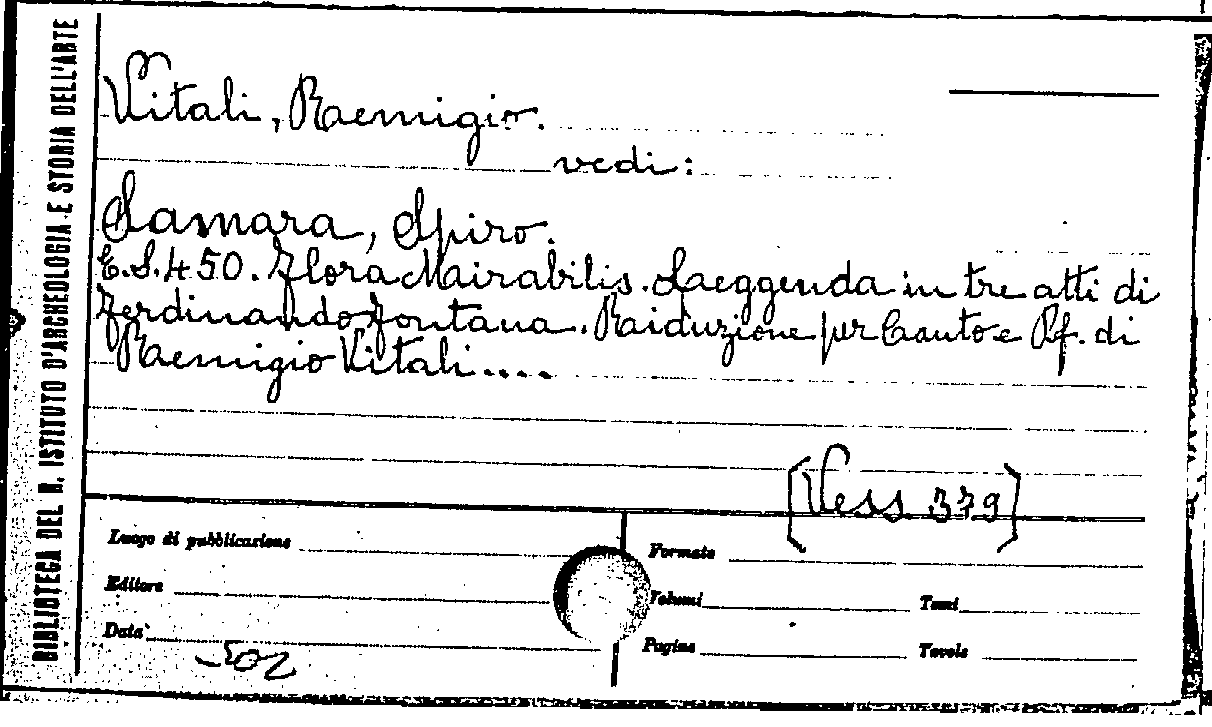 BIBLIOTECA DEL R. ISTITUTO D'ARCHEOLOGIA E STORIA DELL'ARTE
Vitali, Remigio.
vedi:
Samara, Spiro.
E.S.450. Flora Mirabilis. Leggenda in tre atti di
Ferdinando Fontana. Riduzione per Canto e Pf. di
Remigio Vitali....
[Vess 379]
Luogo di pubblicazione
Formato
Editore
Volumi
Tomi
Data
Pagine
Tavole
502